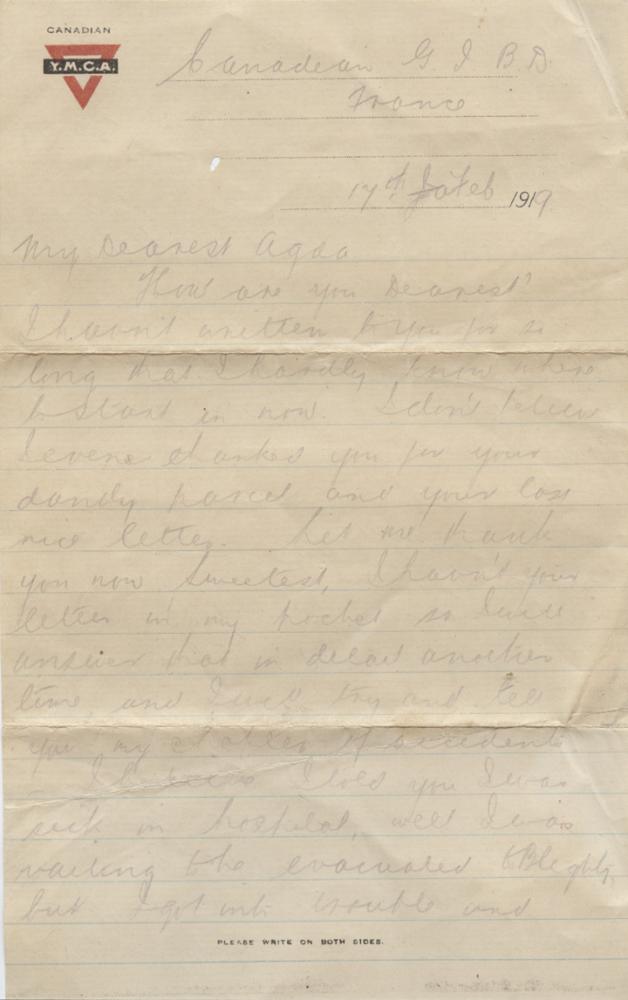 CANADIAN
Y.M.C.A.
Canadian G I B D
France
17th Feb 1919
My Dearest
How are you Dearest?
I havn't written to you for so
long that I hardly know where
to Start in now. I don't believe
I even thanked you for your
dandy parcel and your last
nice letter. Let me thank
you now Sweetest, I havn't your
letter in my pocket so I will
answer that in detail another
time, and I will try and tell
you my chapter of accidents
I told you I was
sick in hospital, well I was
waiting to be evacuated to Blighty,
but I got into trouble and
PLEASE WRITE ON BOTH SIDES.